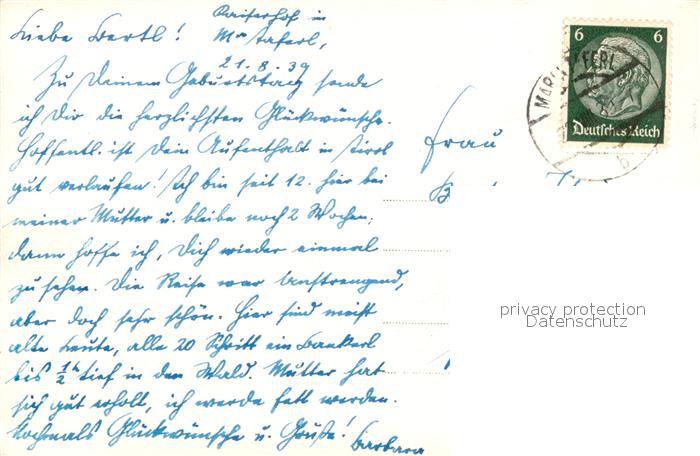 Kaiserhof in
Liebe Bertl! Ma Taferl,
21.8.39
Zu Deinem Geburtstag sende
ich Dir die herzlichsten Glückwünsche.
Hoffentl. ist Dein Aufenthalt in Tirol
gut verlaufen! Ich bin seit 12. hier bei
meiner Mutter u. bleibe noch 2 Wochen,
dann hoffe ich, Dich wieder einmal
zu sehen. Die Reise war anstrengend,
aber doch sehr schön. Hier sind meist
alte Leute, alle 20 Schritt ein Bankerl
bis ½ h tief in den Wald. Mutter hat
sich gut erholt, ich werde fett werden.
Nochmals Glückwünsche u. Grüße!
Barbara
Frau
6 6
Deutsches Reich
MARIA TAFERL
b
privacy protection
Datenschutz